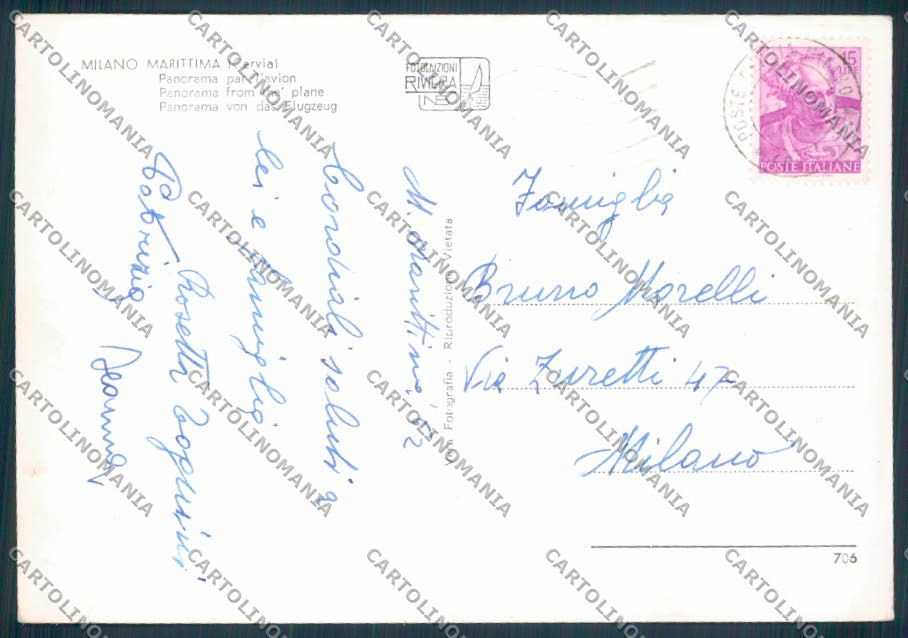 MILANO MARITTIMA (Cervia)
Panorama par l'avion
Panorama from the' plane
Panorama von das Flugzeug
FOTOEDIZIONI
RIVIERA
15
LIRE
POSTE ITALIANE
M. Marittima, 62
Cordiali saluti a
lei e famiglia
Rosetta
Fabrizio
Vera Fotografia - Riproduzione Vietata
Famiglia
Bruno Morelli
Via Zuretti 47
Milano
706
CARTOLINOMANIA